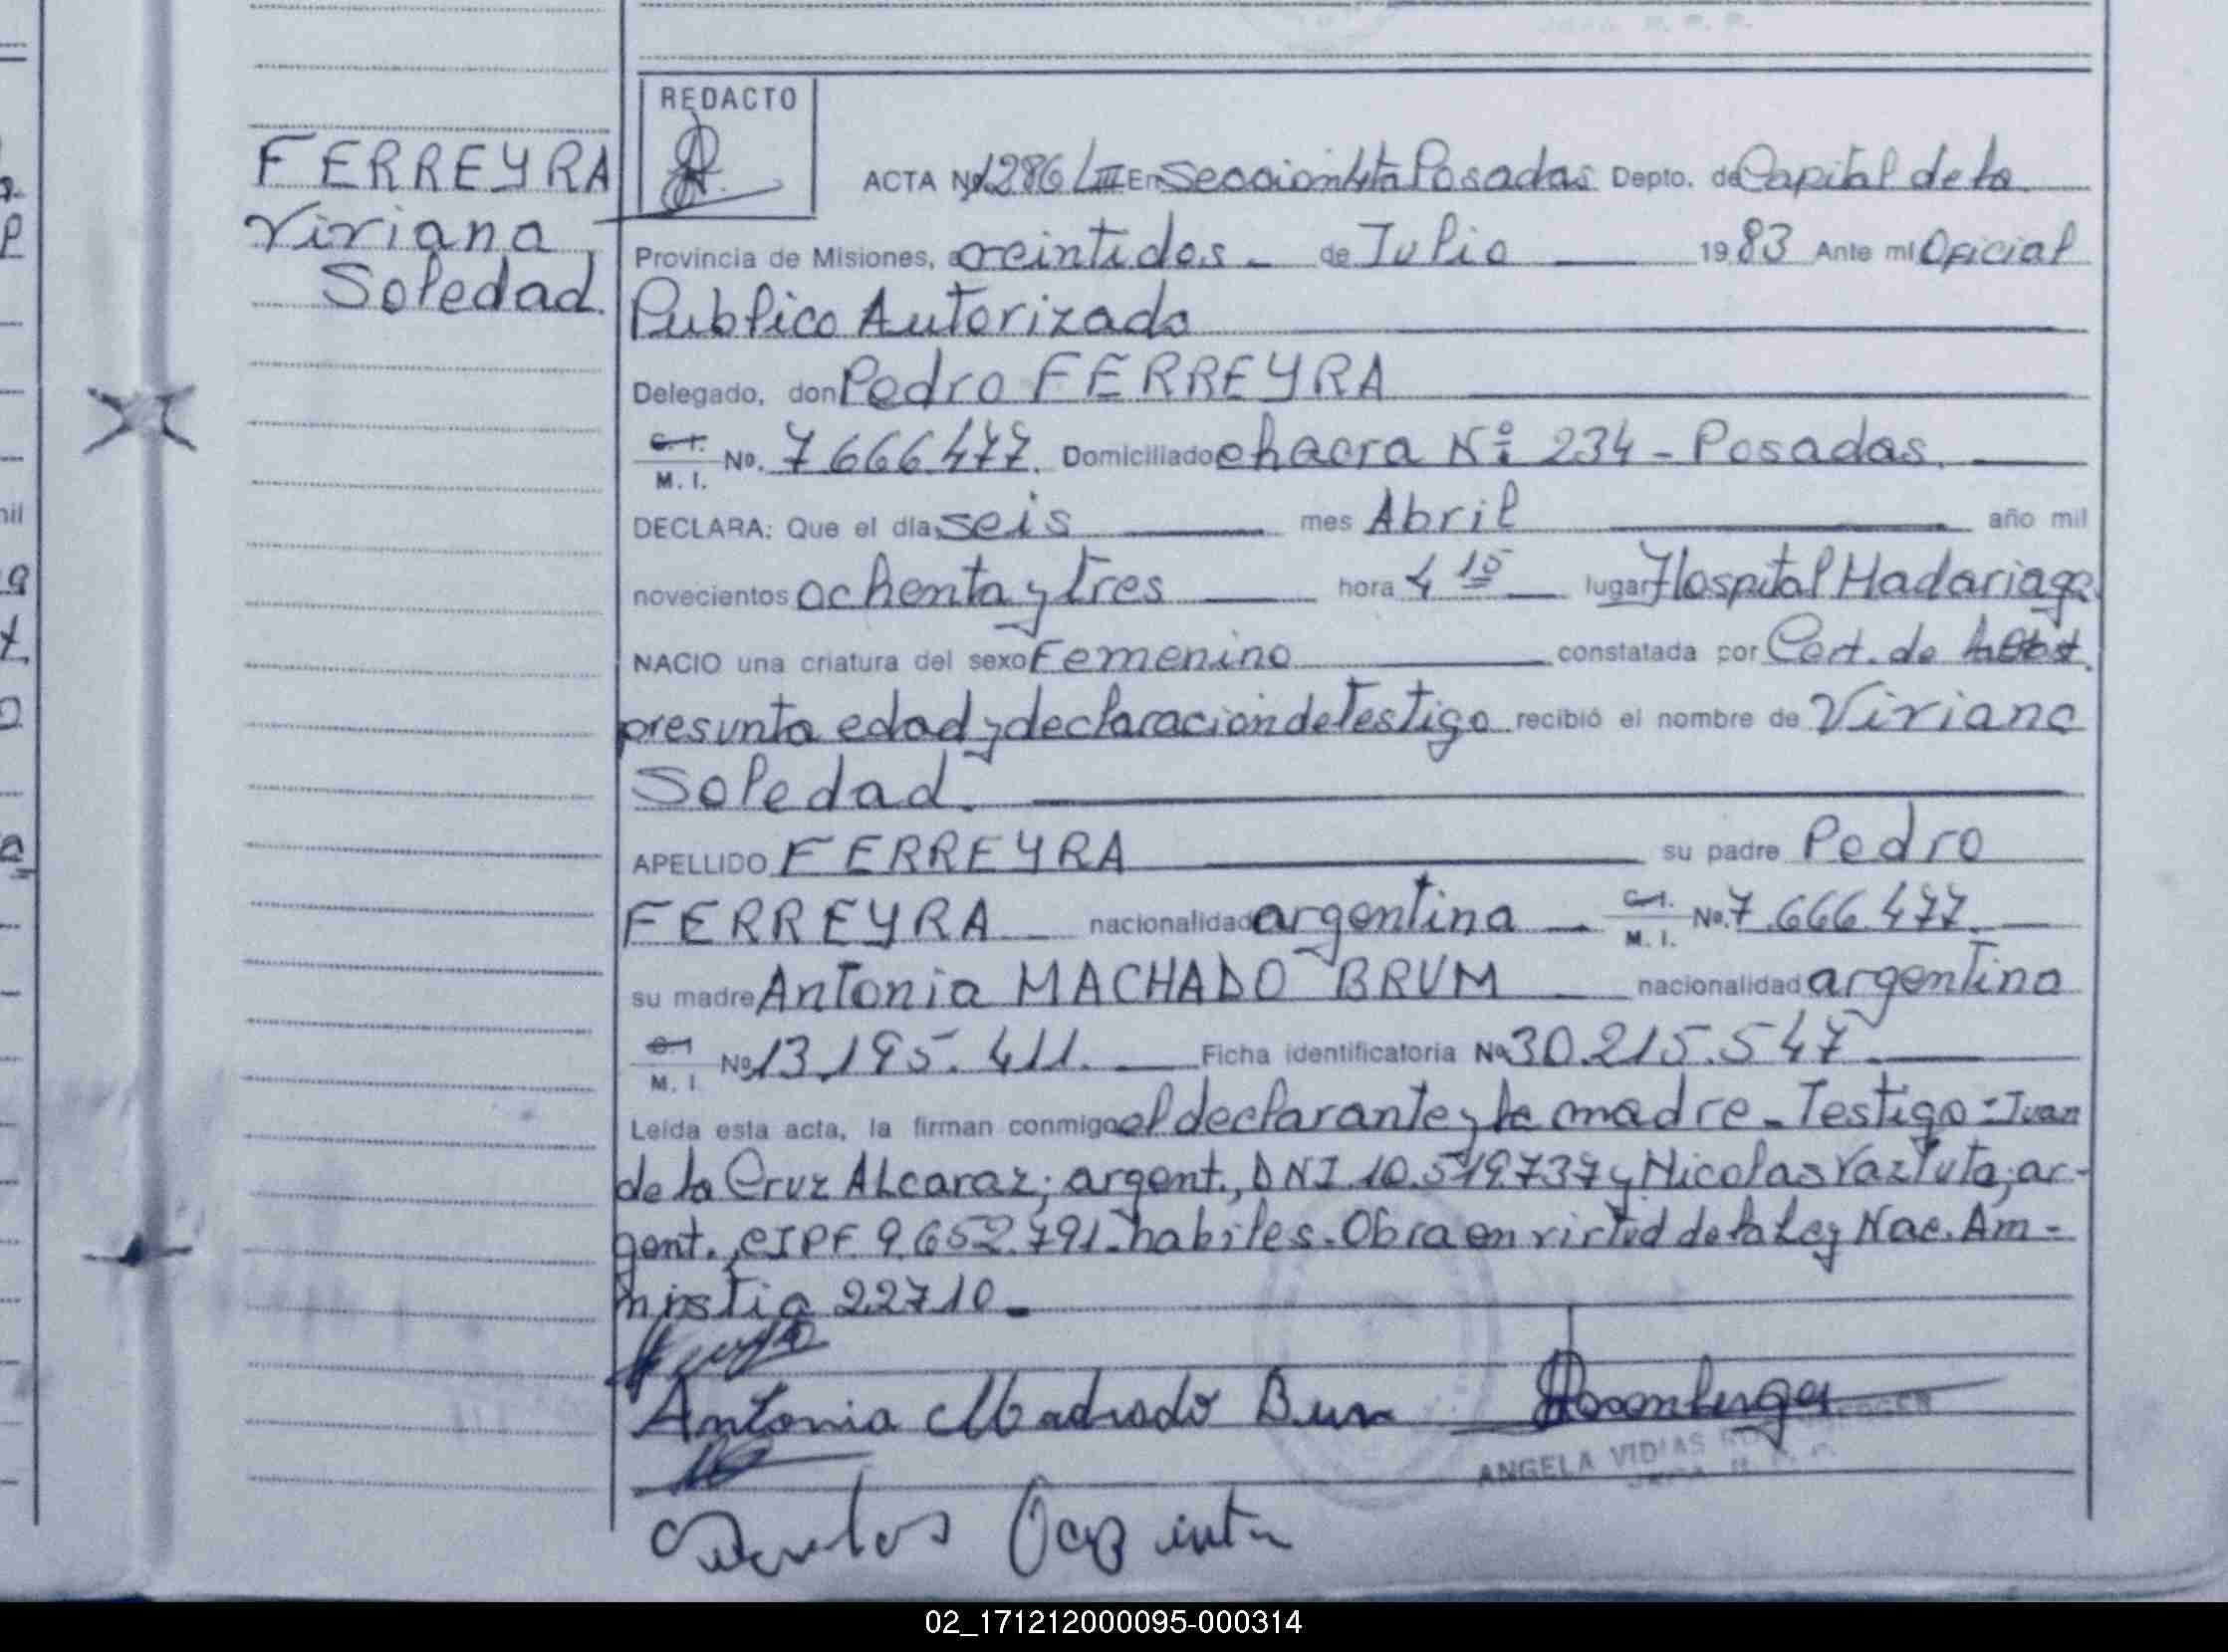 REDACTO
FERREYRA
Viviana
Soledad.
ACTA Nº 1286/III En Seccion 4ta Posadas Depto. de Capital de la
Provincia de Misiones, a veintidos. de Julio 1983 Ante mi Oficial
Publico Autorizado
Delegado, don Pedro FERREYRA
C. I. M. I. No. 7.666.477. Domiciliado chacra Nº 234 - Posadas.
DECLARA: Que el dia seis mes Abril año mil
novecientos ochenta y tres hora 4 15 lugar Hospital Madariaga
NACIO una criatura del sexo Femenino constatada por Cert. de
presunta edad y declaracion de Testigo recibió el nombre de Viviana
Soledad.
APELLIDO FERREYRA su padre Pedro
FERREYRA nacionalidad argentina C. I. M. I. No. 7.666.477.
su madre Antonia MACHADO BRUM nacionalidad argentina
C. I M. I No 13.195.411. Ficha identificatoria No 30.215.547.
Leida esta acta, la firman conmigo el declarante y la madre - Testigo: Juan
de la Cruz ALcaraz; argent., DNI 10.519.737 y Nicolas Vaz Tuta, ar-
gent., CIPF 9.652.791. habiles. Obra en virtud de la Ley Nac. Am-
nistia 22710.
Antonia Machado Brun
ANGELA VIDIAS
02_171212000095-000314